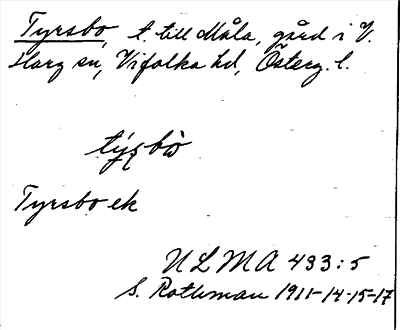 Tyrsbo, t. till Måla, gård i V.
Harg sn, Vifolka hd, Österg. l.
Tyrsbo ek
ULMA 433:5
S. Rothman 1911-14-15-17